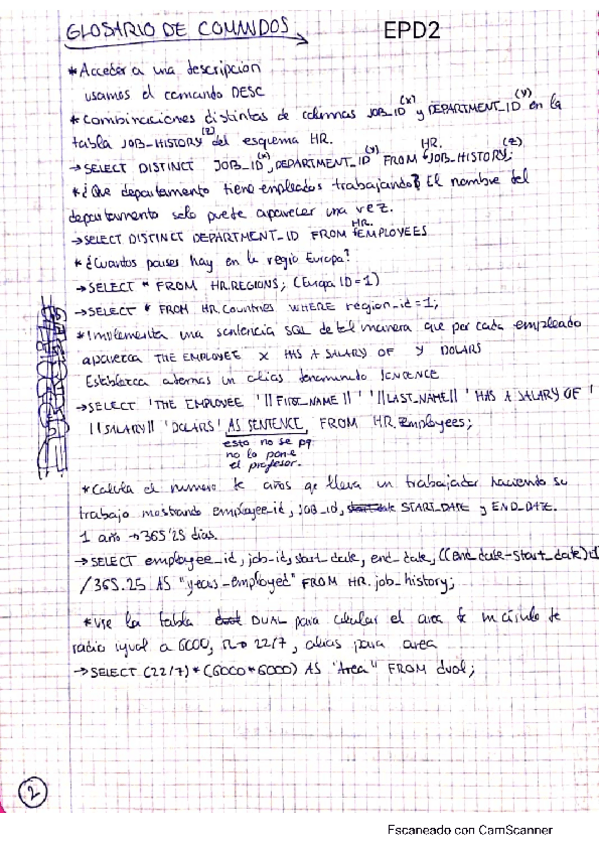 GLOSARIO DE COMANDOS
EPD2
* Acceder a una descripcion
usamos el comando DESC
* Combinaciones distintas de columnas JOB_ID (x) y DEPARTMENT_ID (y) en la
tabla JOB-HISTORY (z) del esquema HR.
→ SELECT DISTINCT JOB_ID (x), DEPARTMENT_ID (y) FROM HR. JOB-HISTORY (z);
* ¿Que departamento tiene empleados trabajando? El nombre del
departamento solo puede aparecer una vez.
→ SELECT DISTINCT DEPARTMENT_ID FROM HR. EMPLOYEES
* ¿Cuantos paises hay en la regio Europa?
→ SELECT * FROM HR.REGIONS; (Europa ID=1)
→ SELECT * FROM HR.Countries WHERE region_id=1;
* Implementa una sentencia SQL de tal manera que por cada empleado
aparezca THE EMPLOYEE X HAS A SALARY OF Y DOLARS
Establezca ademas un alias denominado SENTENCE
→ SELECT 'THE EMPLOYEE '|| FIRST_NAME ||' '||LAST_NAME||' HAS A SALARY OF '
|| SALARY|| ' DOLARS' AS SENTENCE, FROM HR. Employees;
esto no se pq
no lo pone
el profesor.
* Calcula el numero de años qe lleva un trabajador haciendo su
trabajo mostrando employee_id, JOB_ID, START_DATE y END_DATE.
1 año → 365'25 dias.
→ SELECT employee_id, job-id, start_date, end_date, ((end_date-start_date)
/365.25 AS "years-employed" FROM HR.job_history;
* Use la tabla DUAL para calcular el area de un círculo de
radio igual a 6000, π → 22/7, alias para area
→ SELECT (22/7)*(6000*6000) AS "Area" FROM dual;
2
Escaneado con CamScanner